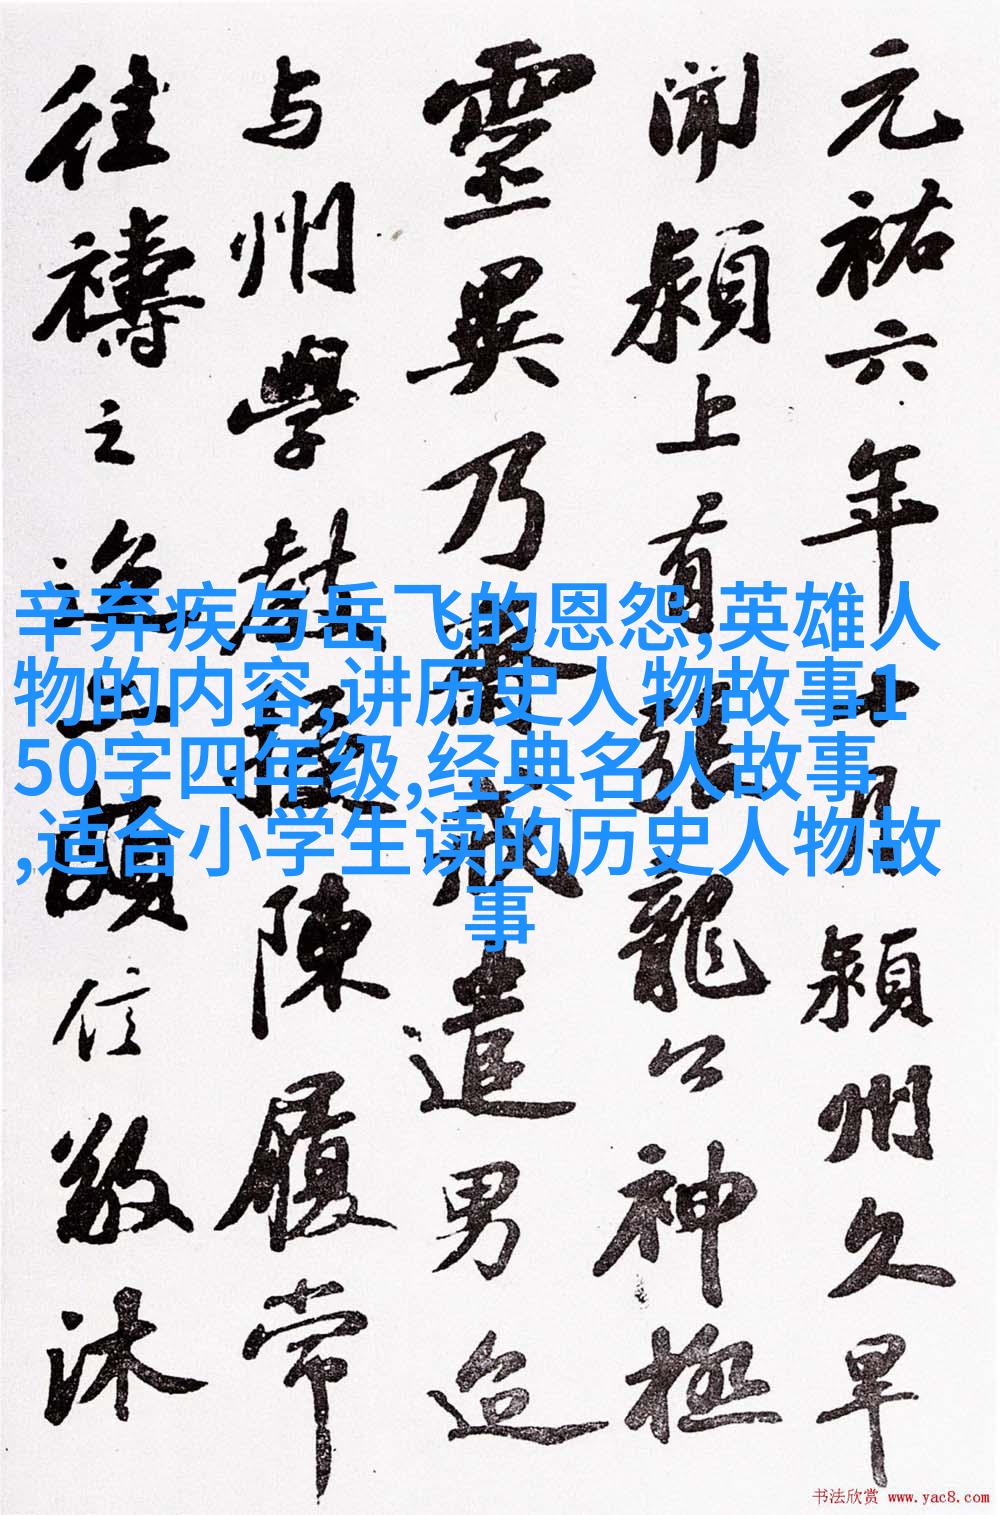 元祐六年十月潁州久旱
聞潁上有張龍公神極
靈異乃齋戒遣男迨
与州學教授陳履常
往禱之迨亦頗信敬沐
辛弃疾与岳飞的恩怨,英雄人
物的内容,讲历史人物故事1
50字四年级,经典名人故事
,适合小学生读的历史人物故
事
书法欣赏 www.yac8.com